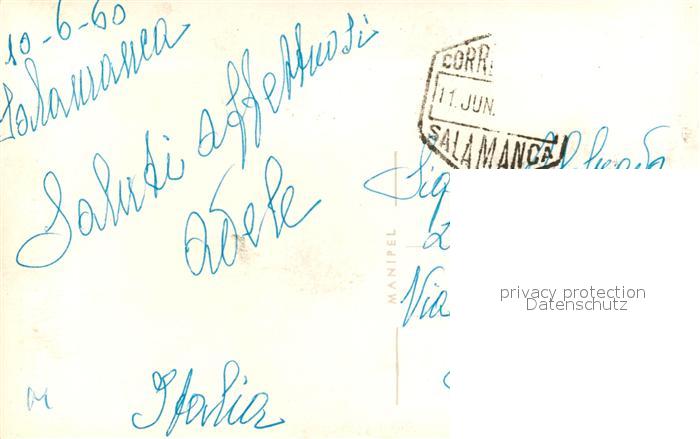 10-6-60
Salamanca
Saluti affettuosi
Adele
Italia
CORR
11.JUN.
SALAMANCA
MANIPEL
Via
privacy protection
Datenschutz